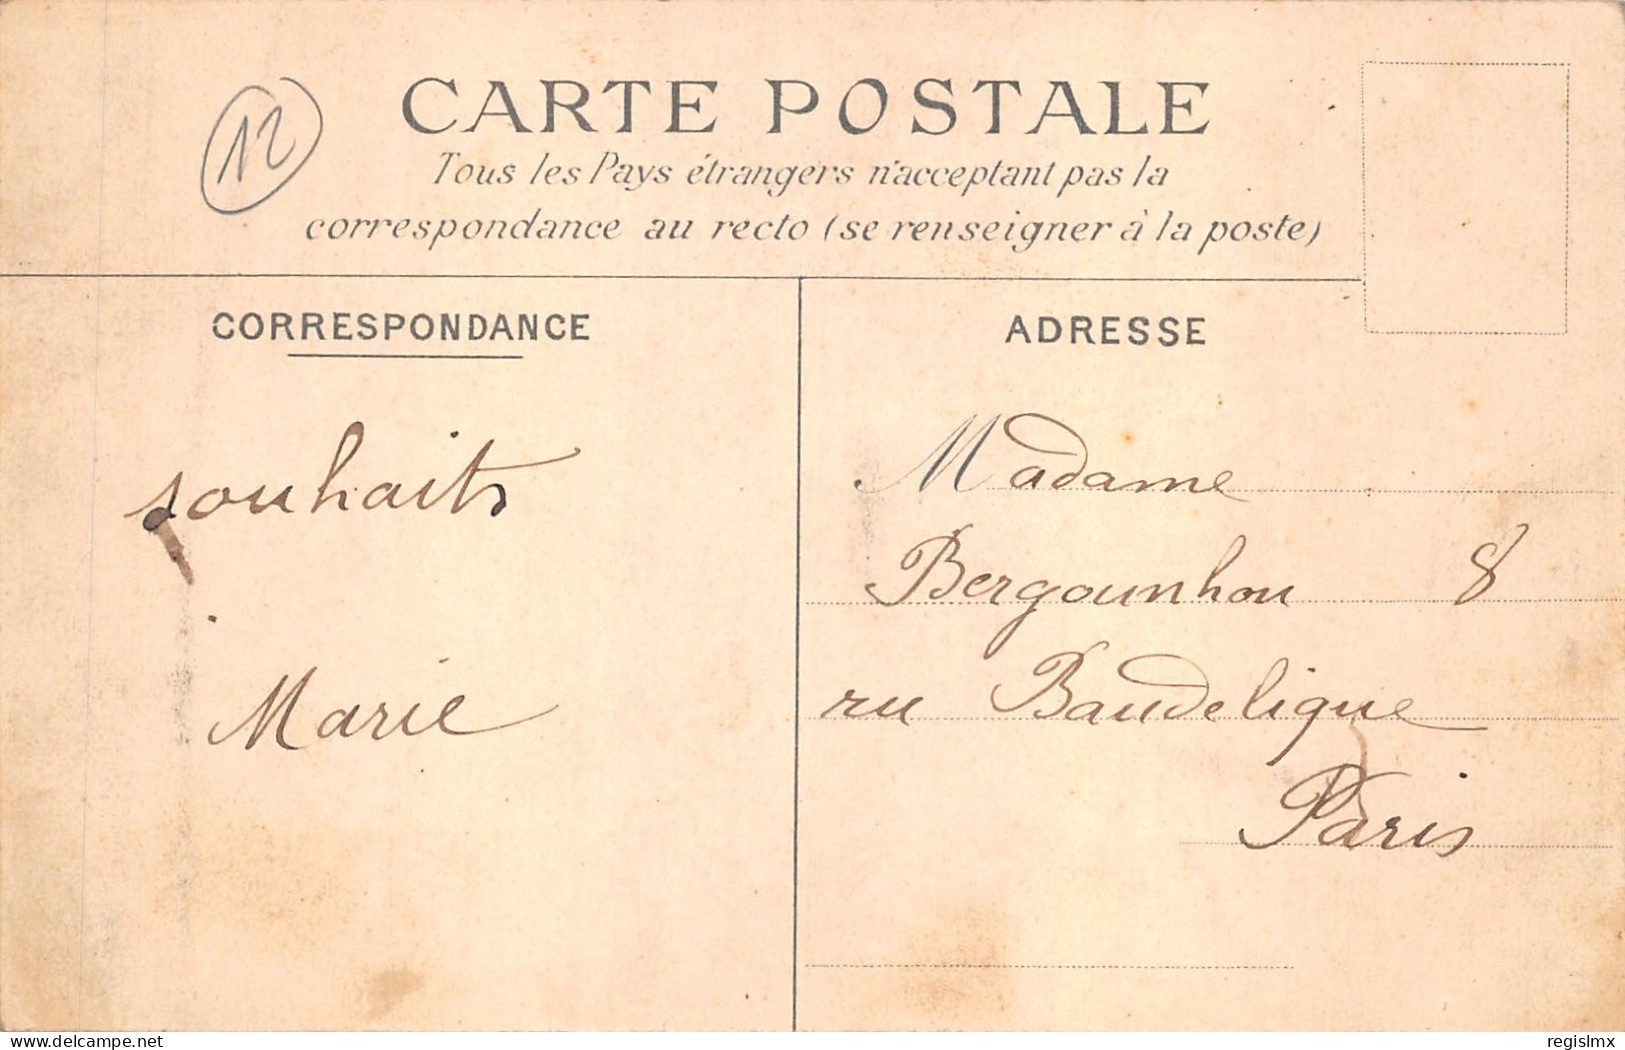 12
CARTE POSTALE
Tous les Pays étrangers n'acceptant pas la
correspondance au recto (se renseigner à la poste)
CORRESPONDANCE
souhaits
Marie
ADRESSE
Madame
Bergounhou 8
ru Baudelique
Paris
delcampe.net
regislmx